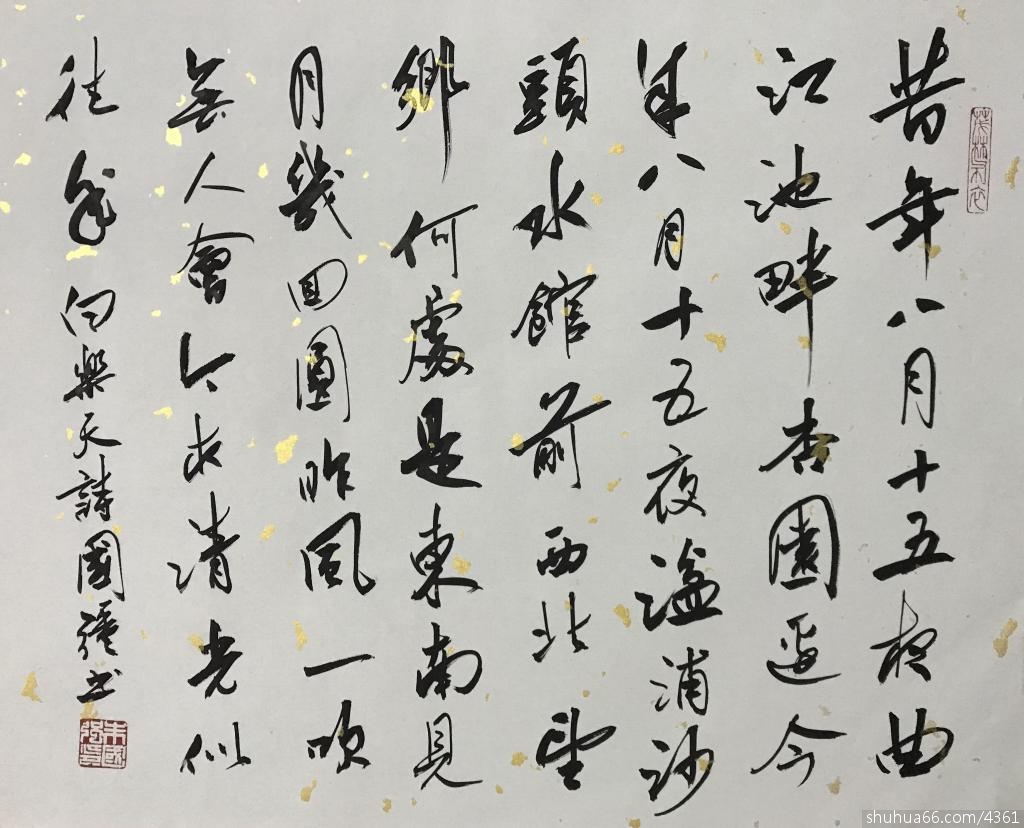 昔年八月十五夜曲
江池畔杏園邊今
年八月十五夜湓浦沙
頭水館前西北望
鄉何處是東南見
月幾回圓昨風一吹
無人會今夜清光似
往年白樂天詩國強书
shuhua66.com/4361